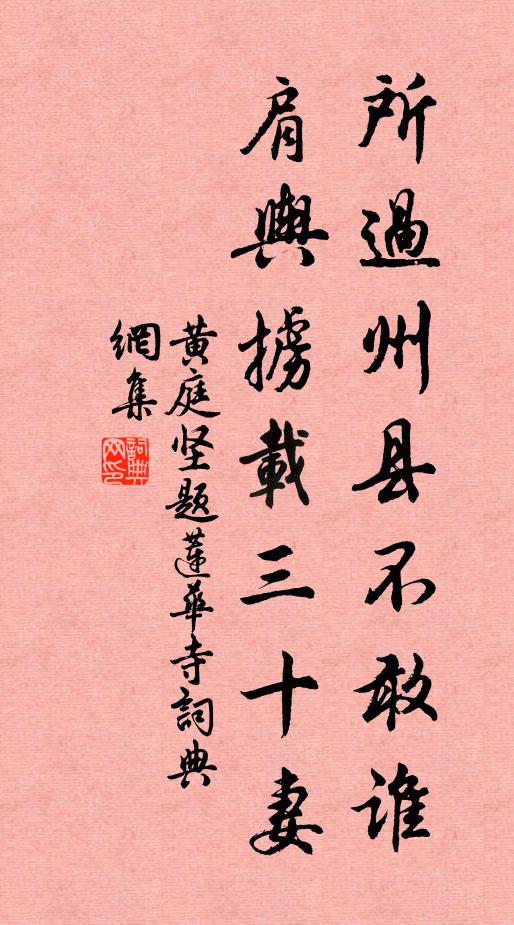 所過州县不敢誰
肩輿擄載三十妻
黄庭坚题蓮華寺詞典
網集
詞典网印